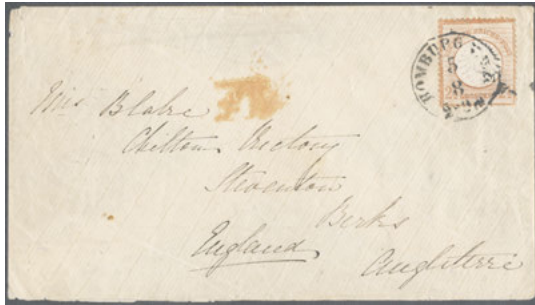 HOMBURG
5
8
Miss Blake
Chilton Rectory
Steventon
Berks
England
Angleterre